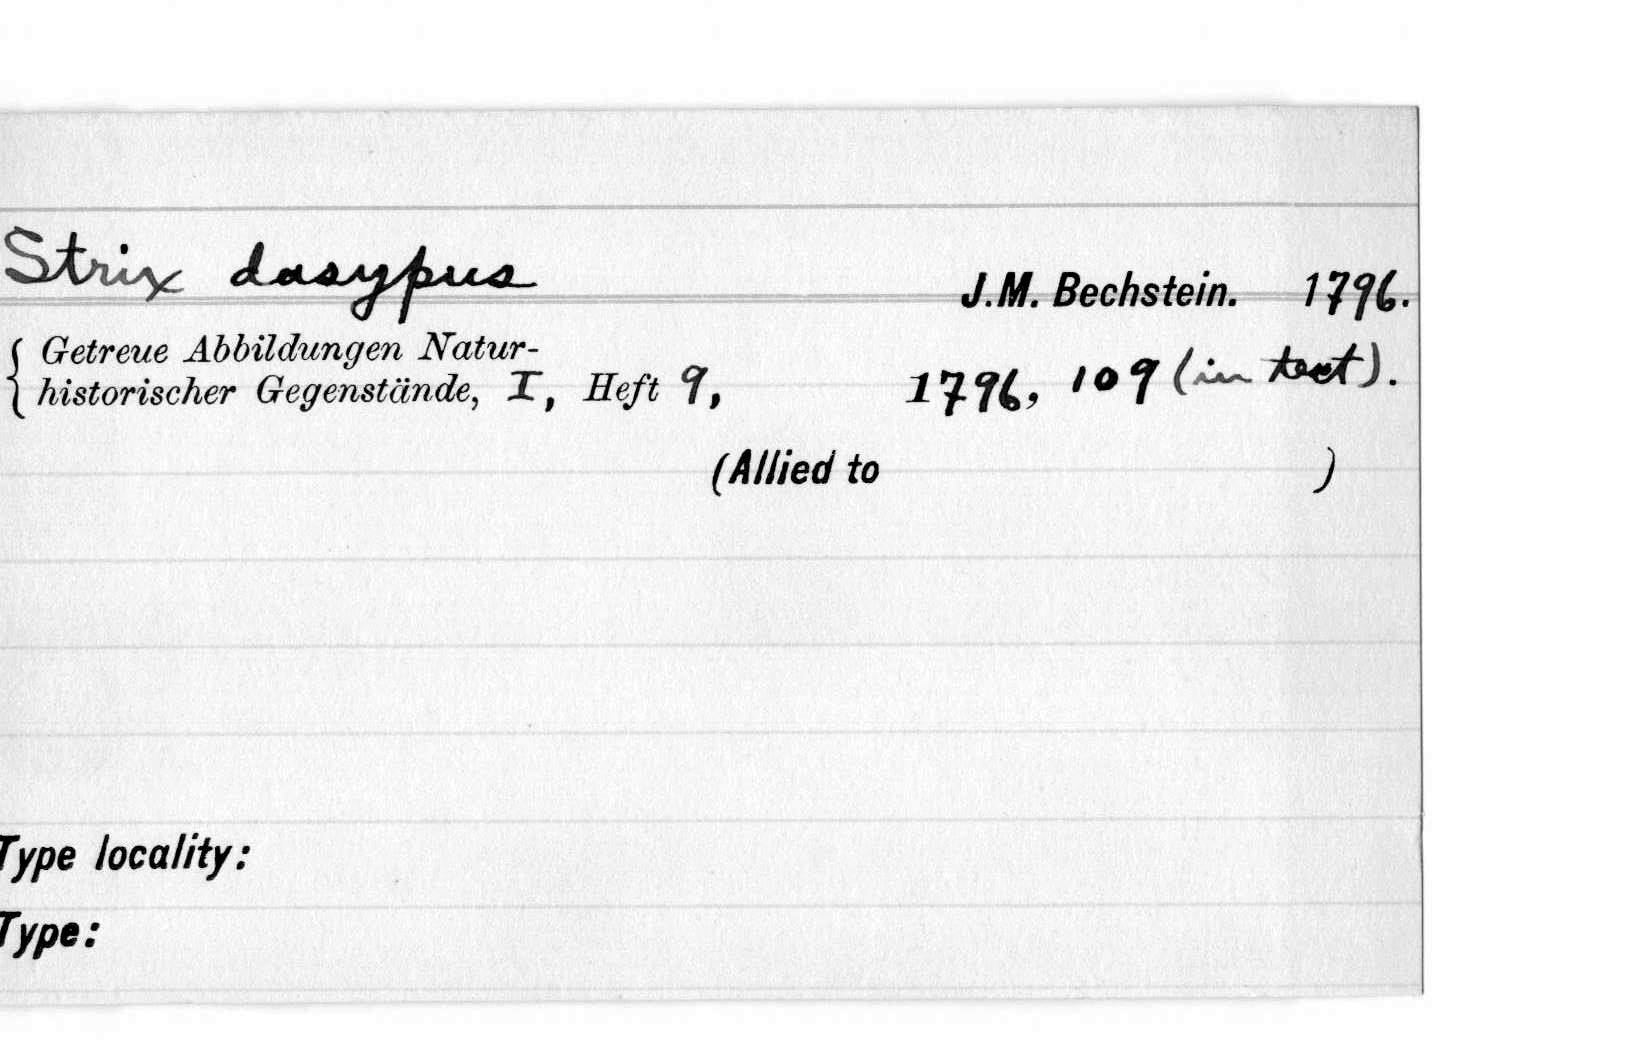 Strix dasypus
J.M. Bechstein. 1796.
{ Getreue Abbildungen Natur-
historischer Gegenstände, I, Heft 9, 1796, 109 (in text).
(Allied to )
Type locality:
Type: